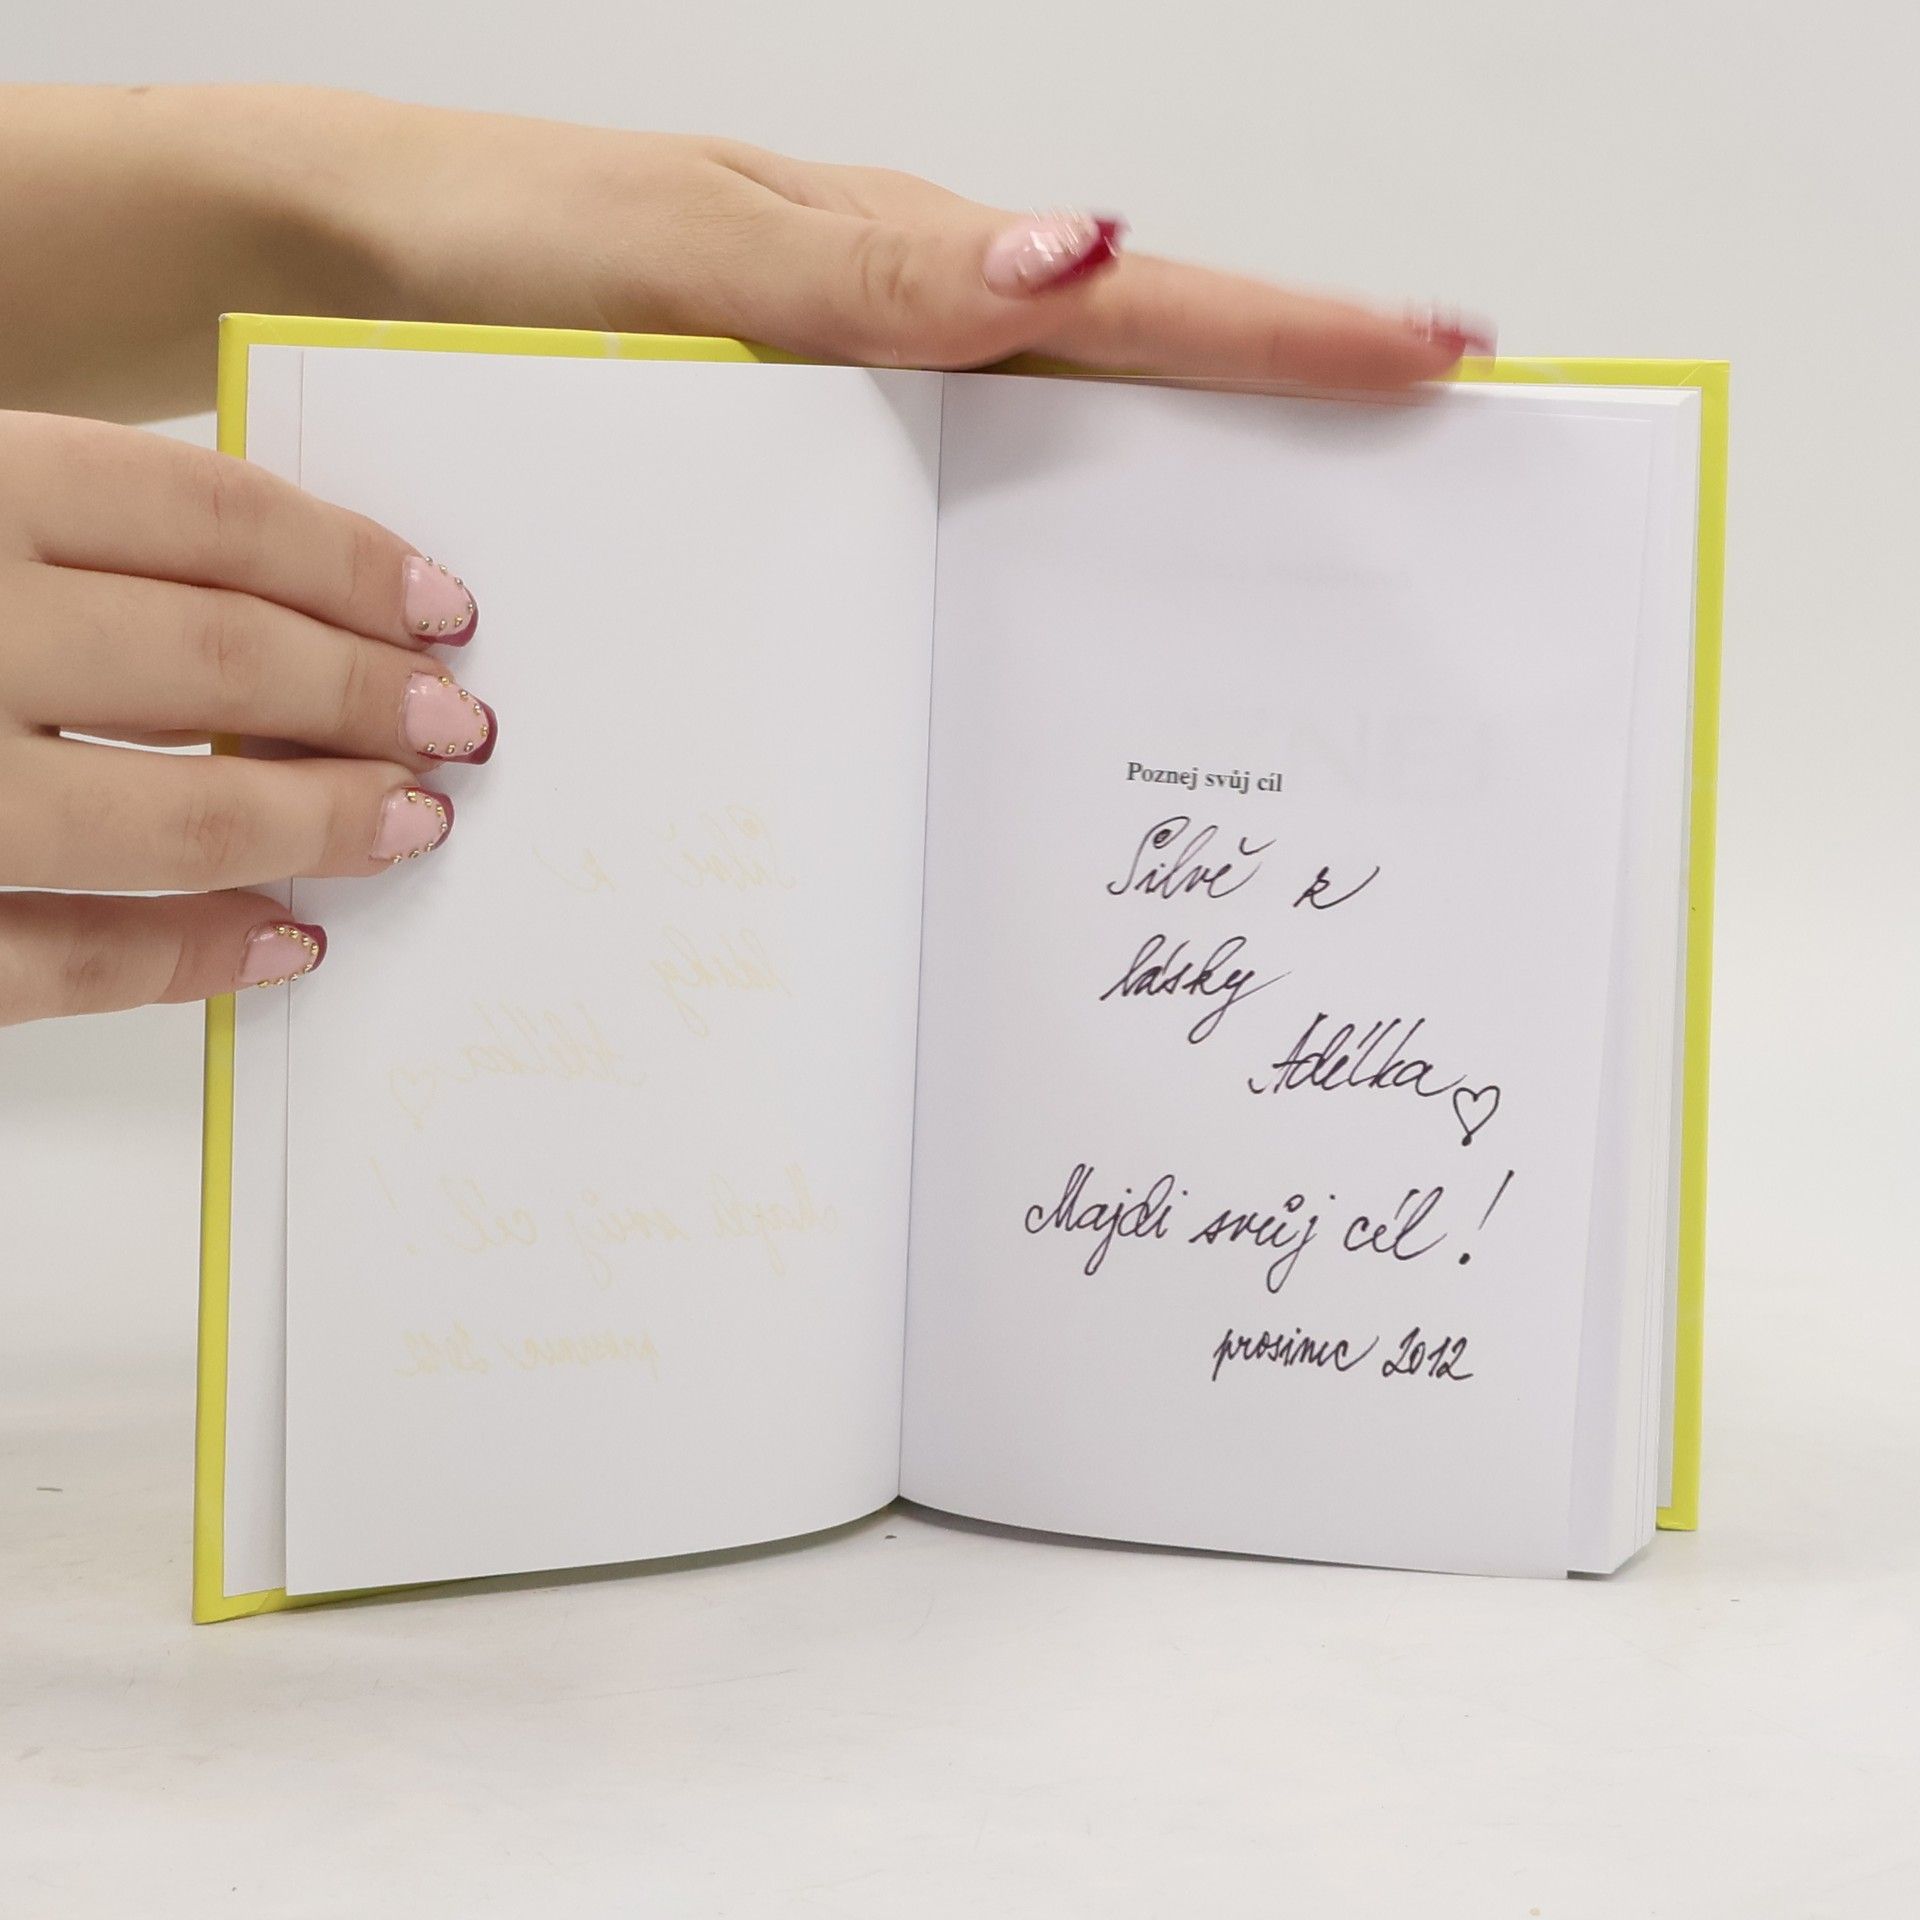 Poznej svůj cíl
Silvě k
lásky
Adélka
Majdi svůj cél!
prosinec 2012